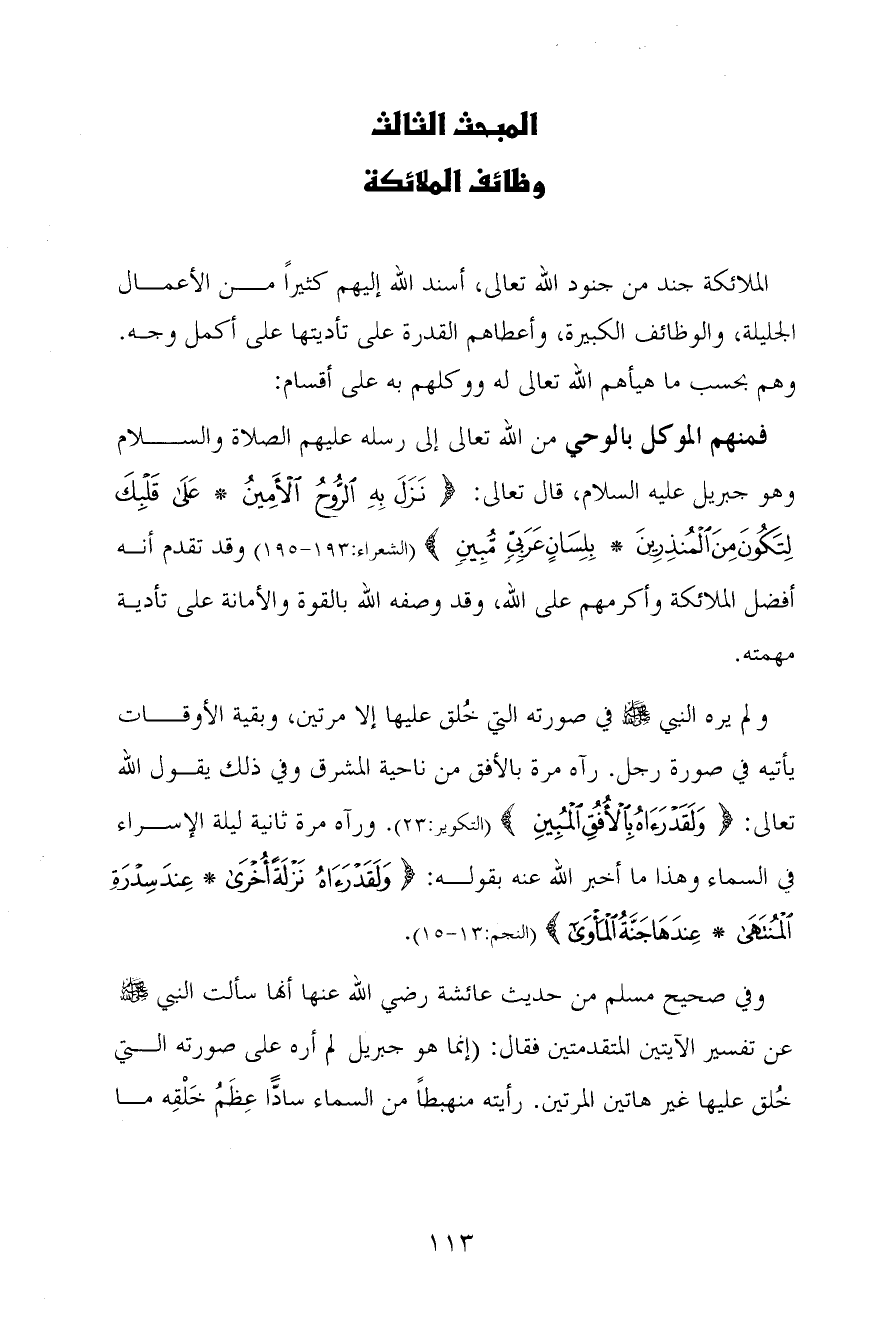 المبحث الثالث
وظائف الملائكة
الملائكة جند من جنود الله تعالى، أسند الله إليهم كثيراً من الأعمال
الجليلة، والوظائف الكبيرة، وأعطاهم القدرة على تأديتها على أكمل وجه.
وهم بحسب ما هيأهم الله تعالى له ووكلهم به على أقسام:
فمنهم الموكل بالوحي من الله تعالى إلى رسله عليهم الصلاة والسلام
وهو جبريل عليه السلام، قال تعالى: ﴿ نَزَلَ بِهِ ٱلرُّوحُ ٱلْأَمِينُ * عَلَىٰ قَلْبِكَ
لِتَكُونَ مِنَ ٱلْمُنذِرِينَ * بِلِسَانٍ عَرَبِيٍّ مُّبِينٍ ﴾ (الشعراء:١٩٣-١٩٥) وقد تقدم أنه
أفضل الملائكة وأكرمهم على الله، وقد وصفه الله بالقوة والأمانة على تأدية
مهمته.
ولم يره النبي ﷺ في صورته التي خُلق عليها إلا مرتين، وبقية الأوقات
يأتيه في صورة رجل. رآه مرة بالأفق من ناحية المشرق وفي ذلك يقول الله
تعالى: ﴿ وَلَقَدْ رَءَاهُ بِٱلْأُفُقِ ٱلْمُبِينِ ﴾ (التكوير:٢٣). ورآه مرة ثانية ليلة الإسراء
في السماء وهذا ما أخبر الله عنه بقوله: ﴿ وَلَقَدْ رَءَاهُ نَزْلَةً أُخْرَىٰ * عِندَ سِدْرَةِ
ٱلْمُنتَهَىٰ * عِندَهَا جَنَّةُ ٱلْمَأْوَىٰ ﴾ (النجم:١٣-١٥).
وفي صحيح مسلم من حديث عائشة رضي الله عنها أنها سألت النبي ﷺ
عن تفسير الآيتين المتقدمتين فقال: (إنما هو جبريل لم أره على صورته التي
خُلق عليها غير هاتين المرتين. رأيته منهبطاً من السماء سادًّا عِظَمُ خَلْقِه ما
١١٣